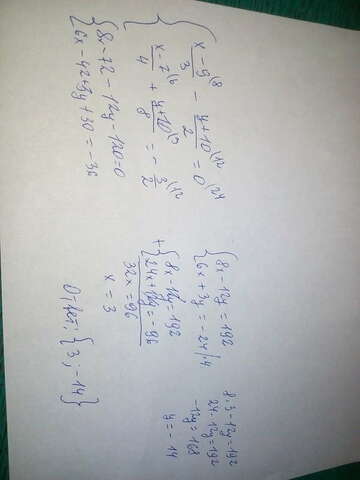 { (x-9)/3 ⁸⁾ - (y+10)/2 ¹²⁾ = 0 ²⁴⁾
(x-7)/4 ⁶⁾ + (y+10)/8 ³⁾ = - 3/2 ¹²⁾
{ 8x-72-12y-120=0
6x-42+3y+30=-36
{ 8x-12y=192
6x+3y=-24 |·4
+ { 8x-12y=192
24x+12y=-96
32x=96
x=3
8·3-12y=192
24-12y=192
-12y=168
y=-14
Ответ: {3;-14}